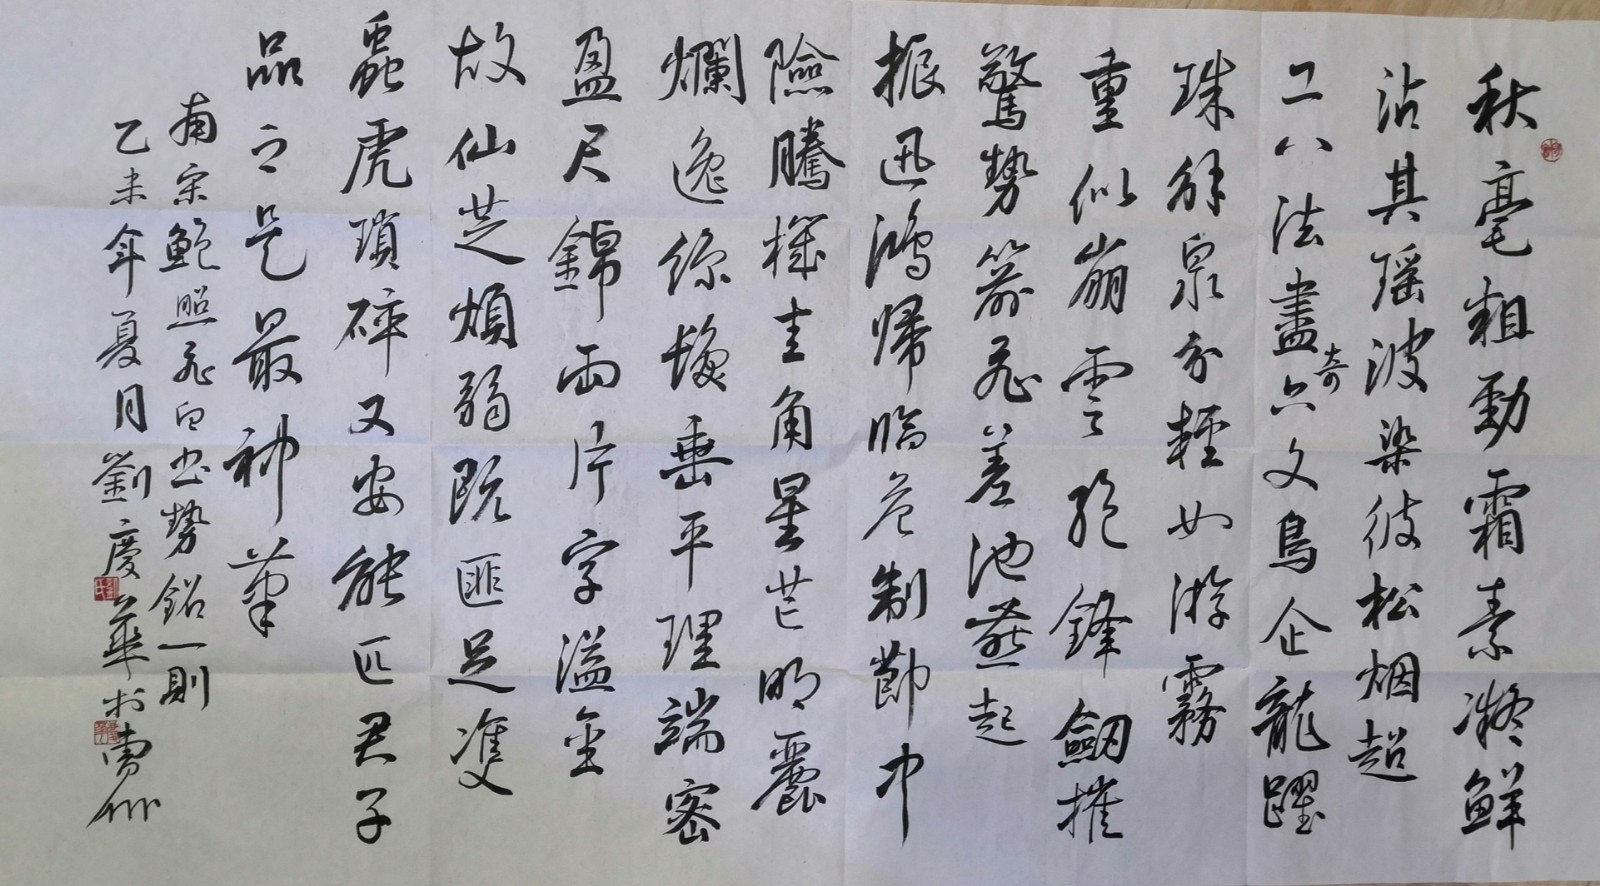 秋毫粗勁霜素凝鮮
沾其瑶波染彼松烟超
二八法盡奇六文鳥企龍躍
珠解泉分輕如游霧
重似崩雲絕鋒劔摧
驚勢箭飛差池燕起
振迅鴻歸臨危制節中
險騰機圭角星芒明麗
爛逸絲髮垂平理端密
盈尺錦兩片字溢金
故仙芝煩弱既匪足雙
蟲虎瑣碎又安能匹君子
品之是最神筆
南宋鮑照飛白书勢銘一則
乙未年夏月劉慶華於曹州